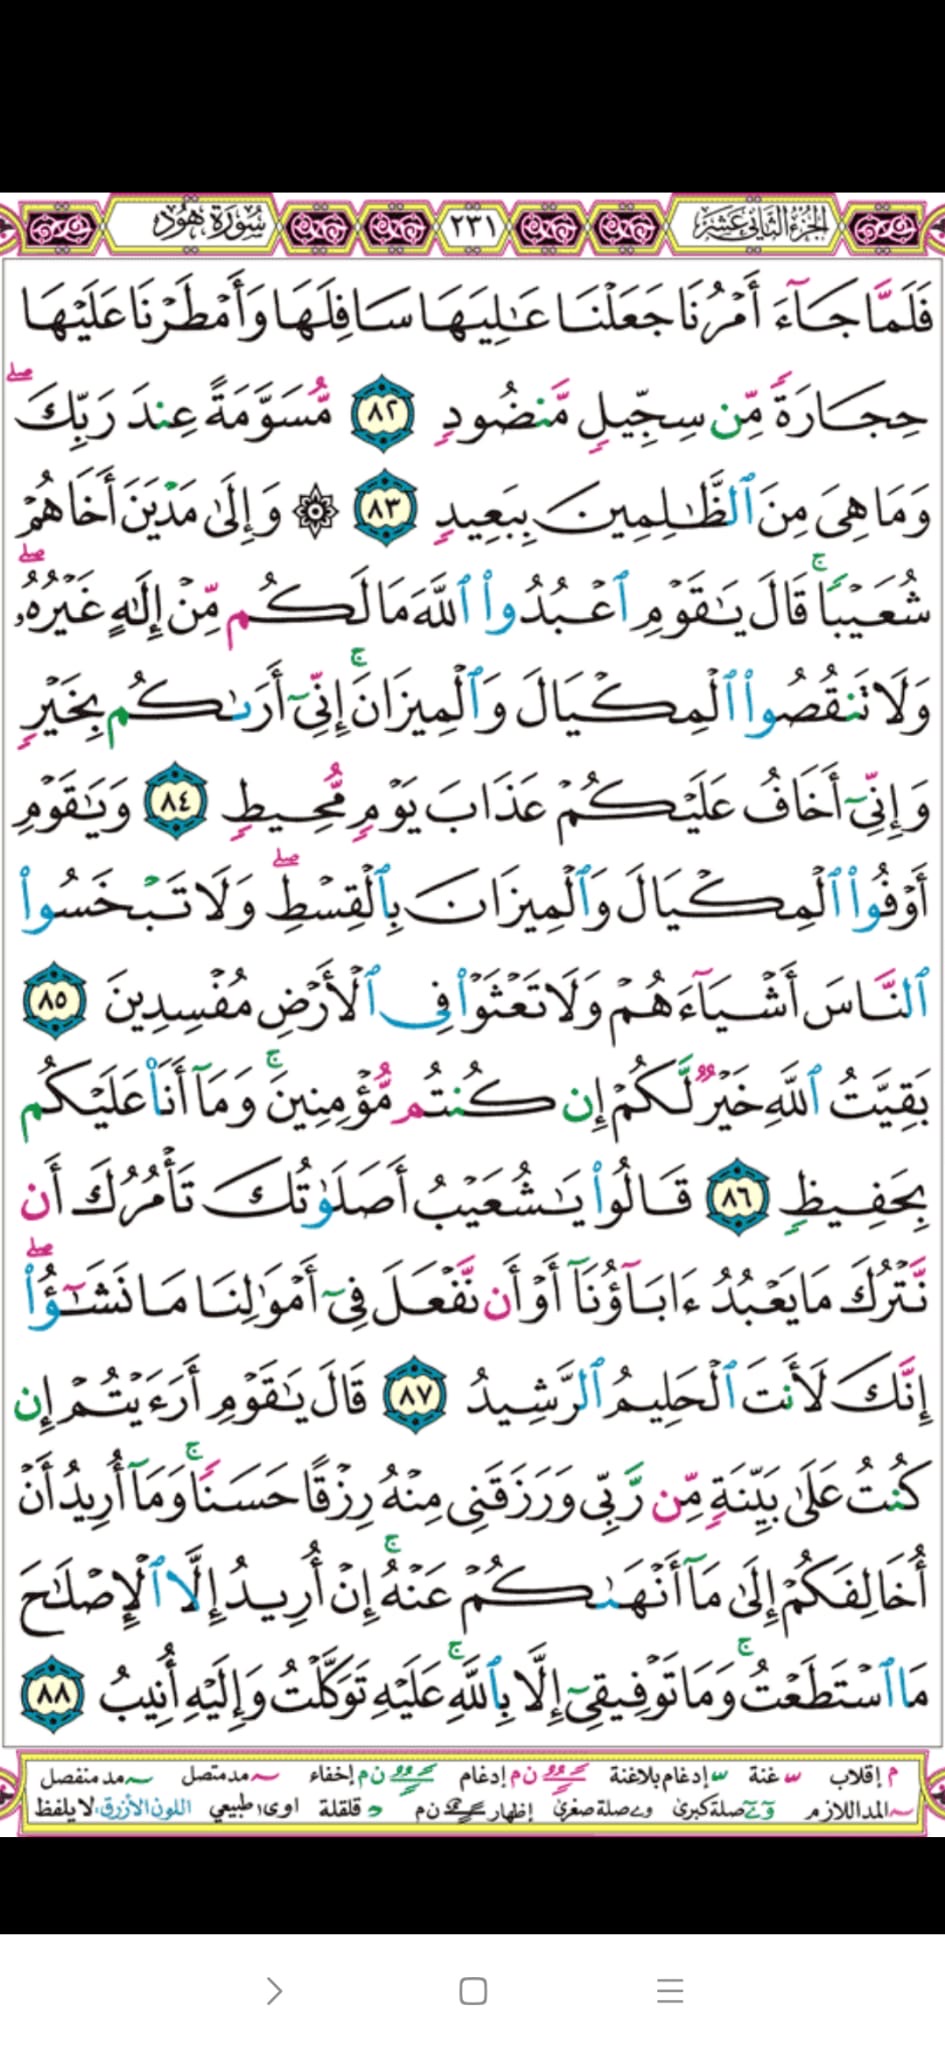 الجزء الثاني عشر
٢٣١
سورة هود
فَلَمَّا جَآءَ أَمْرُنَا جَعَلْنَا عَٰلِيَهَا سَافِلَهَا وَأَمْطَرْنَا عَلَيْهَا
حِجَارَةً مِّن سِجِّيلٍ مَّنضُودٍ ٨٢ مُّسَوَّمَةً عِندَ رَبِّكَ ۖ
وَمَا هِىَ مِنَ ٱلظَّٰلِمِينَ بِبَعِيدٍ ٨٣ ۞ وَإِلَىٰ مَدْيَنَ أَخَاهُمْ
شُعَيْبًا ۚ قَالَ يَٰقَوْمِ ٱعْبُدُوا۟ ٱللَّهَ مَا لَكُم مِّنْ إِلَٰهٍ غَيْرُهُۥ ۖ
وَلَا تَنقُصُوا۟ ٱلْمِكْيَالَ وَٱلْمِيزَانَ ۚ إِنِّىٓ أَرَىٰكُم بِخَيْرٍ
وَإِنِّىٓ أَخَافُ عَلَيْكُمْ عَذَابَ يَوْمٍ مُّحِيطٍ ٨٤ وَيَٰقَوْمِ
أَوْفُوا۟ ٱلْمِكْيَالَ وَٱلْمِيزَانَ بِٱلْقِسْطِ ۖ وَلَا تَبْخَسُوا۟
ٱلنَّاسَ أَشْيَآءَهُمْ وَلَا تَعْثَوْا۟ فِى ٱلْأَرْضِ مُفْسِدِينَ ٨٥
بَقِيَّتُ ٱللَّهِ خَيْرٌ لَّكُمْ إِن كُنتُم مُّؤْمِنِينَ ۚ وَمَآ أَنَا۠ عَلَيْكُم
بِحَفِيظٍ ٨٦ قَالُوا۟ يَٰشُعَيْبُ أَصَلَوٰتُكَ تَأْمُرُكَ أَن
نَّتْرُكَ مَا يَعْبُدُ ءَابَآؤُنَآ أَوْ أَن نَّفْعَلَ فِىٓ أَمْوَٰلِنَا مَا نَشَٰٓؤُا۟ ۖ
إِنَّكَ لَأَنتَ ٱلْحَلِيمُ ٱلرَّشِيدُ ٨٧ قَالَ يَٰقَوْمِ أَرَءَيْتُمْ إِن
كُنتُ عَلَىٰ بَيِّنَةٍ مِّن رَّبِّى وَرَزَقَنِى مِنْهُ رِزْقًا حَسَنًا ۚ وَمَآ أُرِيدُ أَنْ
أُخَالِفَكُمْ إِلَىٰ مَآ أَنْهَىٰكُمْ عَنْهُ ۚ إِنْ أُرِيدُ إِلَّا ٱلْإِصْلَٰحَ
مَا ٱسْتَطَعْتُ ۚ وَمَا تَوْفِيقِىٓ إِلَّا بِٱللَّهِ ۚ عَلَيْهِ تَوَكَّلْتُ وَإِلَيْهِ أُنِيبُ ٨٨
م إقلاب غنة إدغام بلاغنة ن م إدغام ن م إخفاء مد متصل مد منفصل
المد اللازم صلة كبرى صلة صغرى إظهار ن م قلقلة اوى طبيعي اللون الأزرق: لا يلفظ